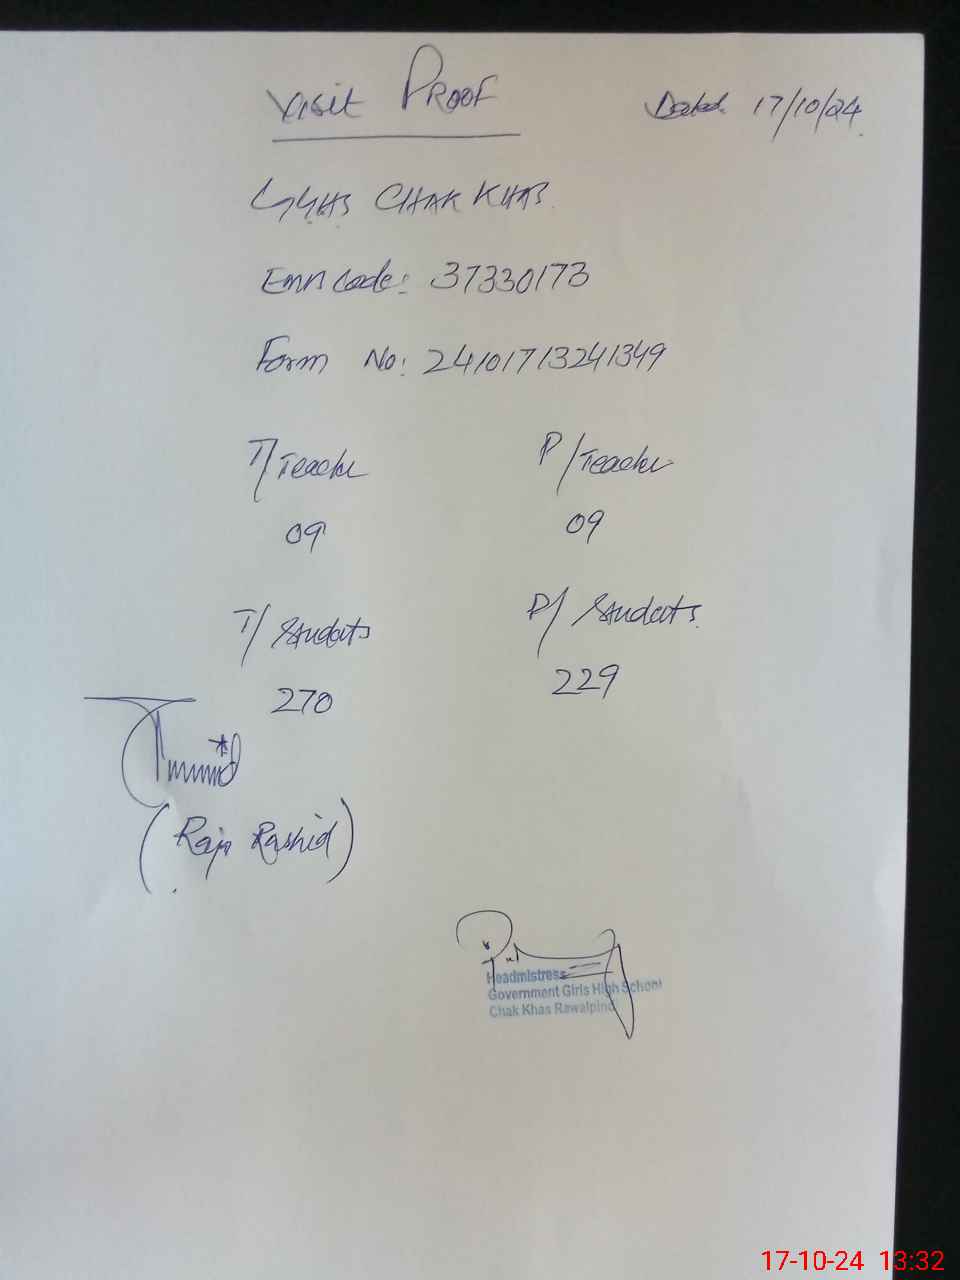 Visit PROOF
Dated. 17/10/24
GGHS CHAK KHAS
EMIS Code: 37330173
Form No: 24101713241349
T/Teacher P/Teacher
09 09
T/ Students P/ Students.
270 229
(Raja Rashid)
Headmistress
Government Girls High School
Chak Khas Rawalpindi
17-10-24 13:32